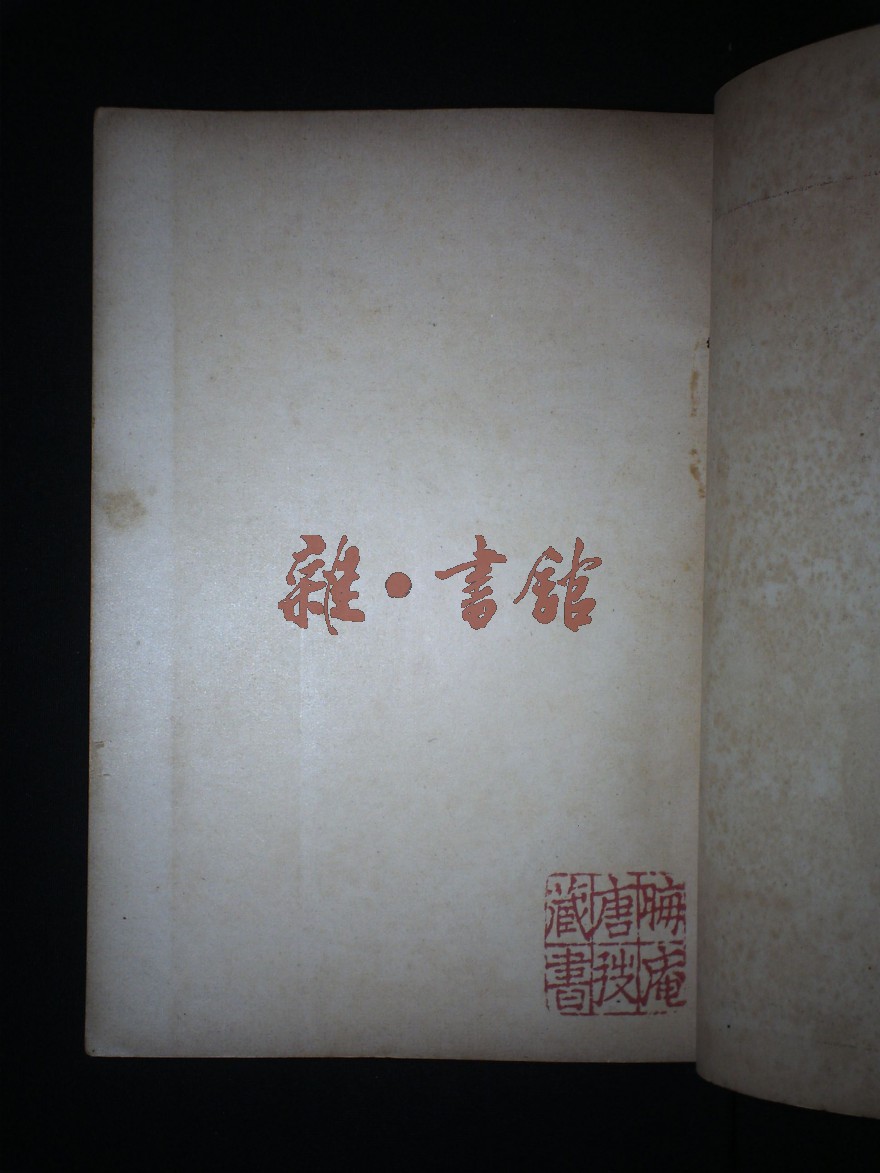 雜•書館
晦庵
唐弢
藏書